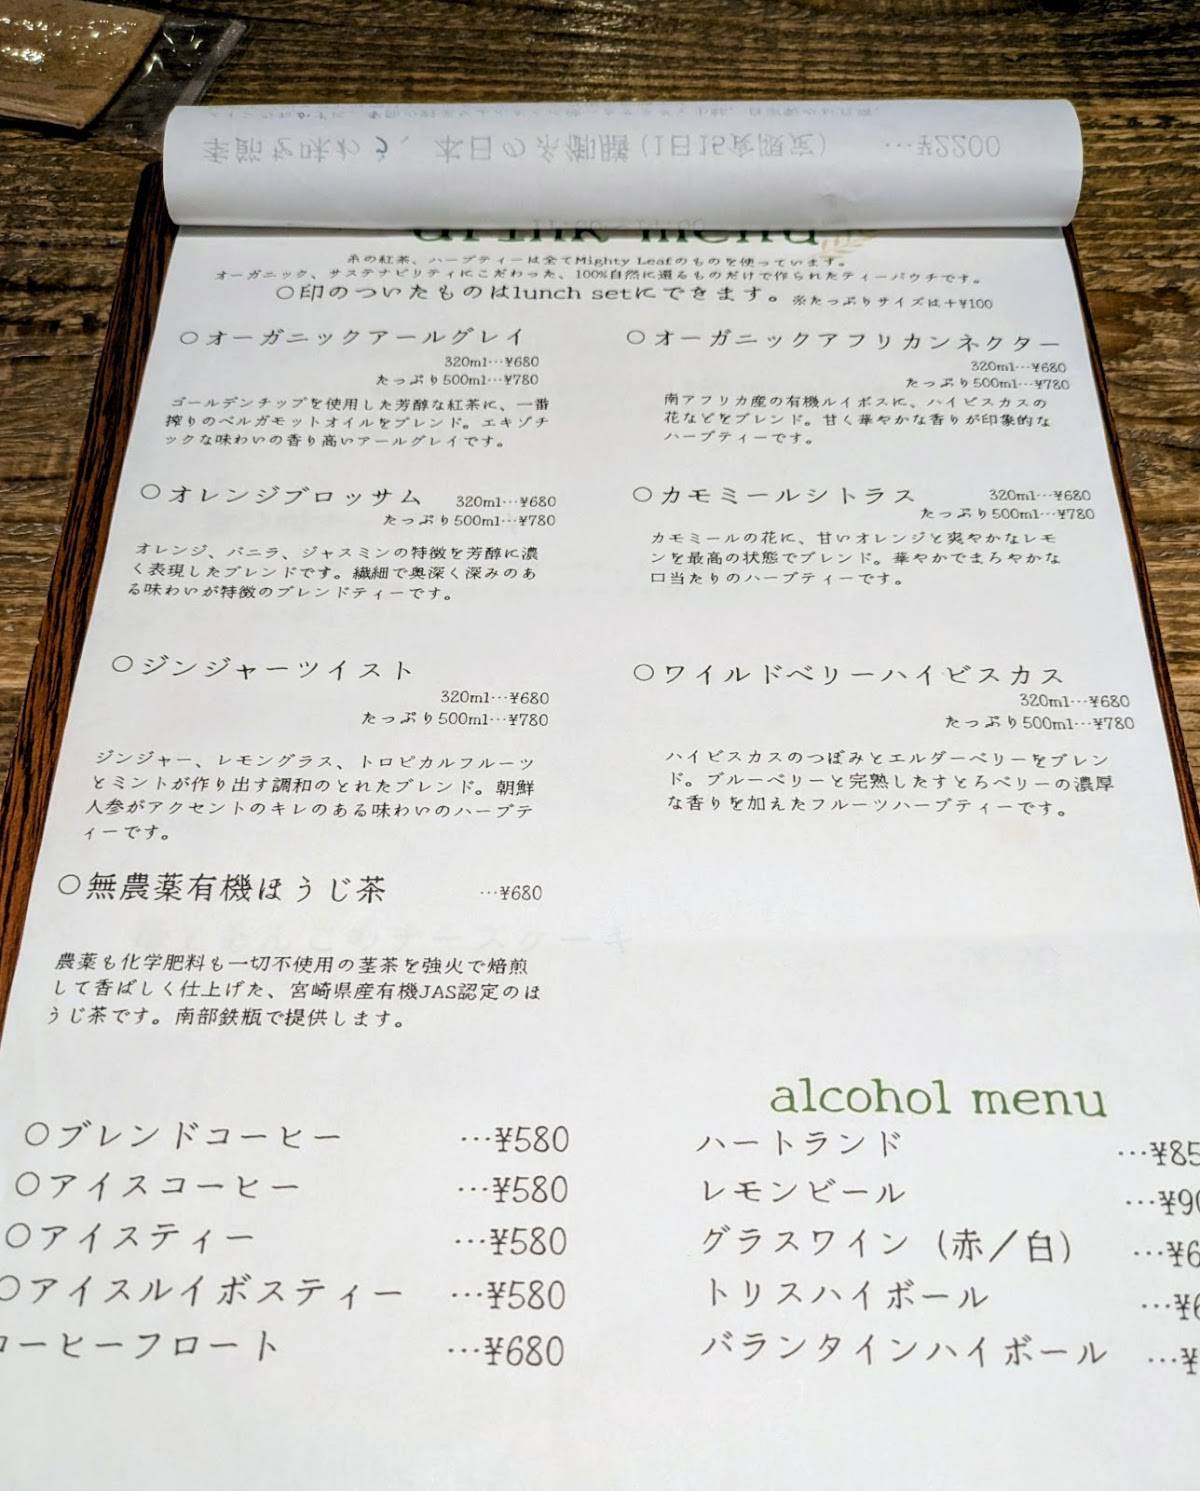 季節を味わう、本日の糸御膳(1日15食限定) …¥2200
drink menu
糸の紅茶、ハーブティーは全てMighty Leafのものを使っています。
オーガニック、サステナビリティにこだわった、100%自然に還るものだけで作られたティーパウチです。
○印のついたものはlunch setにできます。※たっぷりサイズは+¥100
○オーガニックアールグレイ
320ml…¥680
たっぷり500ml…¥780
ゴールデンチップを使用した芳醇な紅茶に、一番
搾りのベルガモットオイルをブレンド。エキゾチ
ックな味わいの香り高いアールグレイです。
○オーガニックアフリカンネクター
320ml…¥680
たっぷり500ml…¥780
南アフリカ産の有機ルイボスに、ハイビスカスの
花などをブレンド。甘く華やかな香りが印象的な
ハーブティーです。
○オレンジブロッサム 320ml…¥680
たっぷり500ml…¥780
オレンジ、バニラ、ジャスミンの特徴を芳醇に濃
く表現したブレンドです。繊細で奥深く深みのあ
る味わいが特徴のブレンドティーです。
○カモミールシトラス 320ml…¥680
たっぷり500ml…¥780
カモミールの花に、甘いオレンジと爽やかなレモ
ンを最高の状態でブレンド。華やかでまろやかな
口当たりのハーブティーです。
○ジンジャーツイスト
320ml…¥680
たっぷり500ml…¥780
ジンジャー、レモングラス、トロピカルフルーツ
とミントが作り出す調和のとれたブレンド。朝鮮
人参がアクセントのキレのある味わいのハーブテ
ィーです。
○ワイルドベリーハイビスカス
320ml…¥680
たっぷり500ml…¥780
ハイビスカスのつぼみとエルダーベリーをブレン
ド。ブルーベリーと完熟したすとろベリーの濃厚
な香りを加えたフルーツハーブティーです。
○無農薬有機ほうじ茶 …¥680
農薬も化学肥料も一切不使用の茎茶を強火で焙煎
して香ばしく仕上げた、宮崎県産有機JAS認定のほ
うじ茶です。南部鉄瓶で提供します。
○ブレンドコーヒー …¥580
○アイスコーヒー …¥580
○アイスティー …¥580
○アイスルイボスティー …¥580
コーヒーフロート …¥680
alcohol menu
ハートランド …¥85
レモンビール …¥90
グラスワイン(赤/白) …¥6
トリスハイボール …¥6
バランタインハイボール …¥